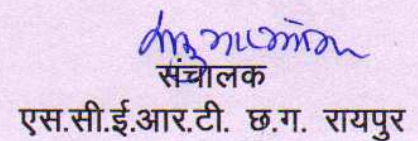 संचालक
एस.सी.ई.आर.टी. छ.ग. रायपुर